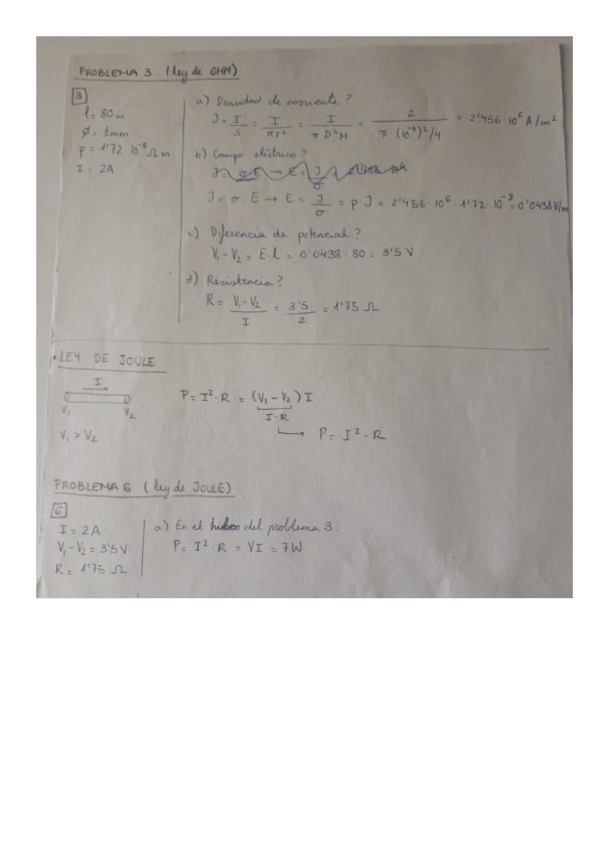 PROBLEMA 3. (ley de OHM)
3
l = 80 m
ø = 1mm
ρ = 1'72 10⁻⁸ Ω m
I = 2A
a) Densidad de corriente?
J = I/S = I/πr² = I/πD²/4 = 2/π·(10⁻³)²/4 = 2'456·10⁶ A/m²
b) Campo eléctrico?
J = σ·E → E = J/σ = ρ·J = 2'456 10⁶ · 1'72·10⁻⁸ = 0'0438 V/m
c) Diferencia de potencial?
V₁-V₂ = E·l = 0'0438·80 = 3'5 V
d) Resistencia?
R = V₁-V₂/I = 3'5/2 = 1'75 Ω
• LEY DE JOULE
I
V₁ V₂
V₁ > V₂
P = I²·R = (V₁-V₂) I
I·R
→ P = I²·R
PROBLEMA 6. (ley de JOULE)
6
I = 2A
V₁-V₂ = 3'5V
R = 1'75 Ω
a) En el del problema 3.
P = I²·R = VI = 7W